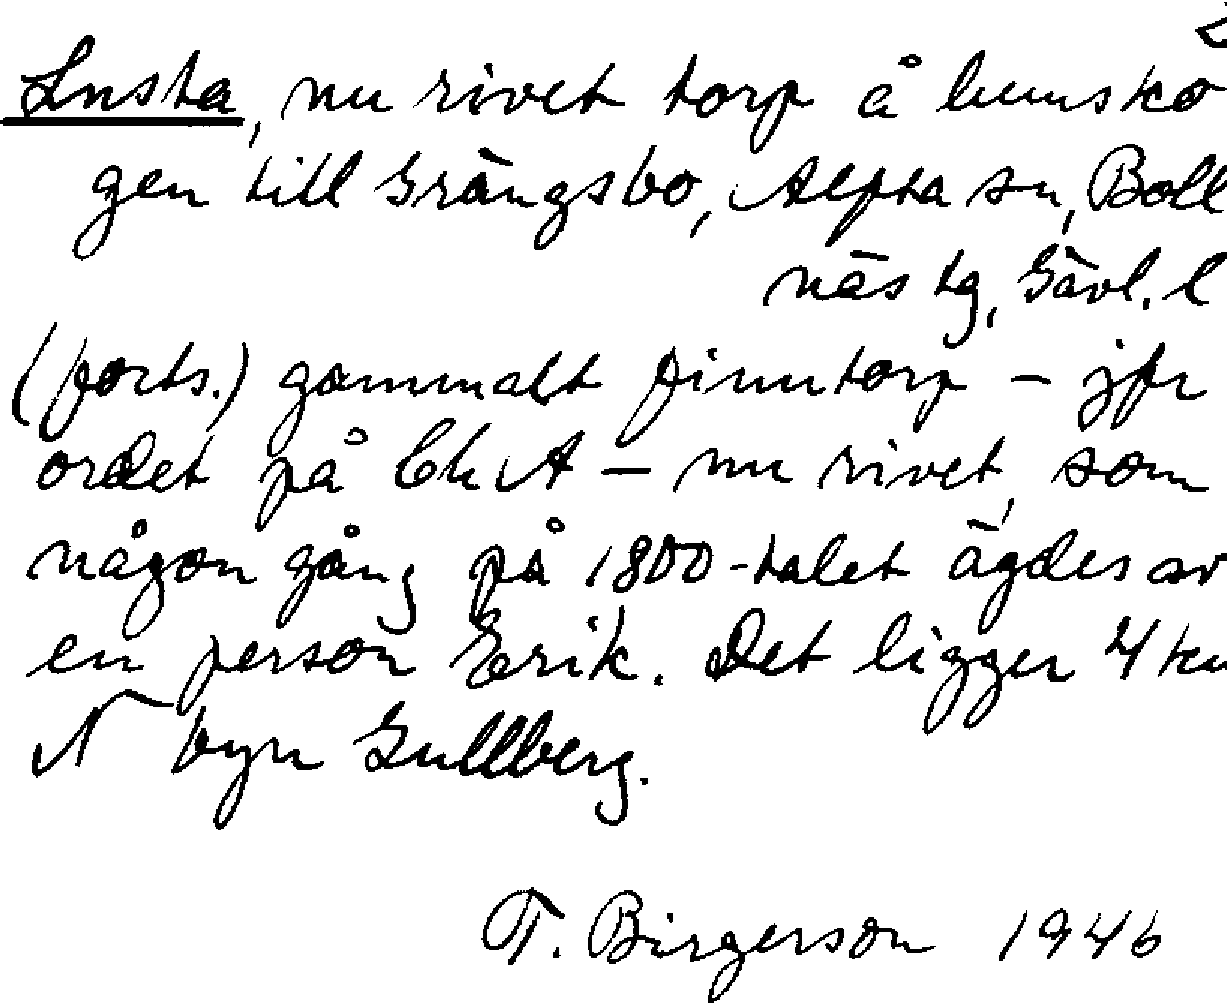 2
Lusta, nu rivet torp å hemsko
gen till Grängsbo, Alfta sn, Boll
näs tg, Gävl. l
(forts.) gammalt finntorp – jfr
ordet på bl. A – nu rivet, som
någon gång på 1800-talet ägdes av
en person Erik. Det ligger 4 km
N byn Gullberg.
T. Birgerson 1946